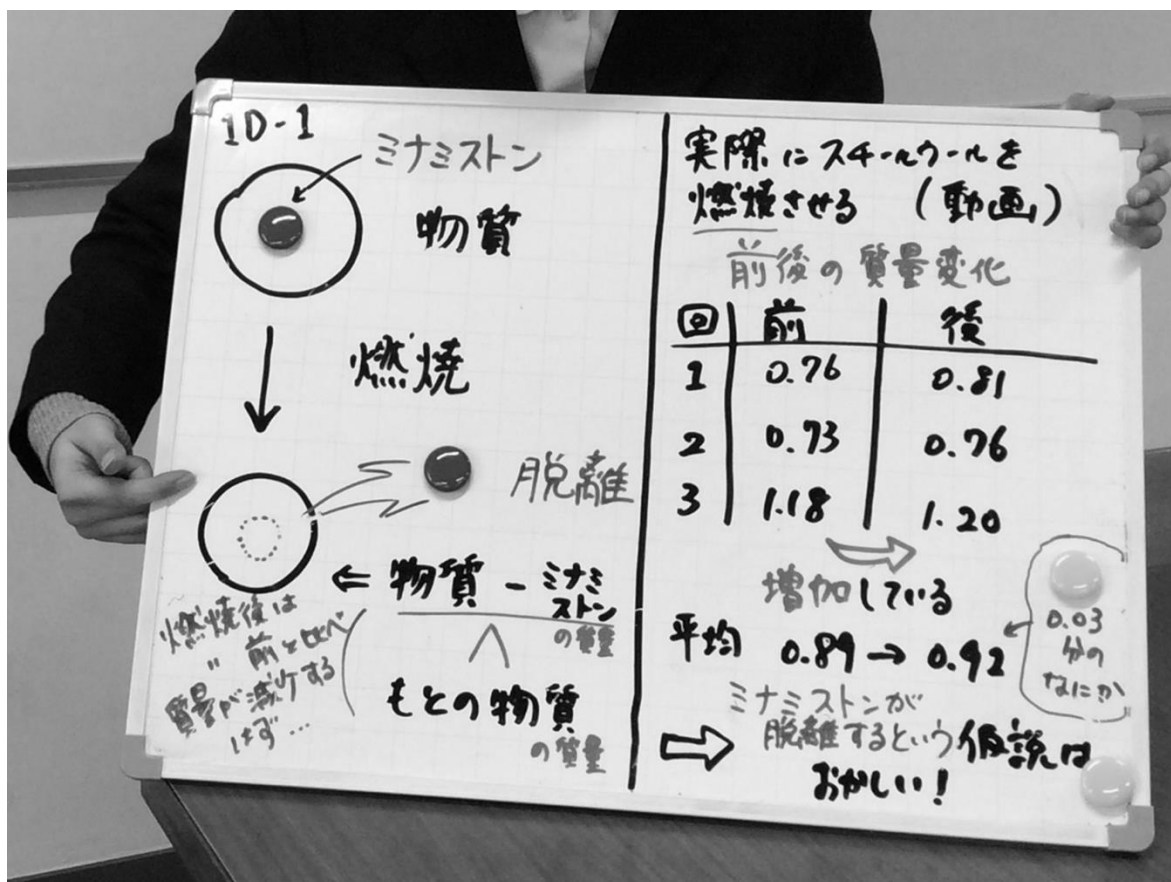 1D-1
ミナミストン
物質
燃焼
脱離
⇐ 物質 - ミナミ
ストン
の質量
∧
もとの物質
の質量
燃焼後は
〃 前と比べ
質量が減少する
はず…
実際にスチールウールを
燃焼させる (動画)
前後の質量変化
回 前 後
1 0.76 0.81
2 0.73 0.76
3 1.18 1.20
増加している
平均 0.89→0.92
0.03
分の
なにか
ミナミストンが
⇒ 脱離するという仮説は
おかしい!